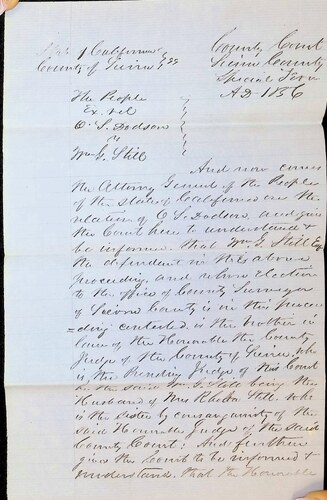 State of California } ss
County of Sierra
County Court
Sierra County
Special Term
A.D. 1856
The People
Ex rel
O. S. Dodson
vs
Wm G. Still
And now comes
the Attorny General of the People
of the state of California on the
relation of O. S. Dodson, and gives
the Court here to understand &
be informed that Wm G. Still Esq
the defendent in this above
proceeding, and whose election
to the office of County Surveyor
of Sierra County is in this procee
=ding contested, is the brother in
law of the Honorable the County
Judge of the County of Sierra, who
is the Presiding Judge of this Court
he the said Wm G. Still being the
Husband of Mrs Rhoda Still, who
is the sister by consanguinity of the
said Honorable Judge of the said
County Court: And further
gives the Court to be informed &
understand, that the Honorable